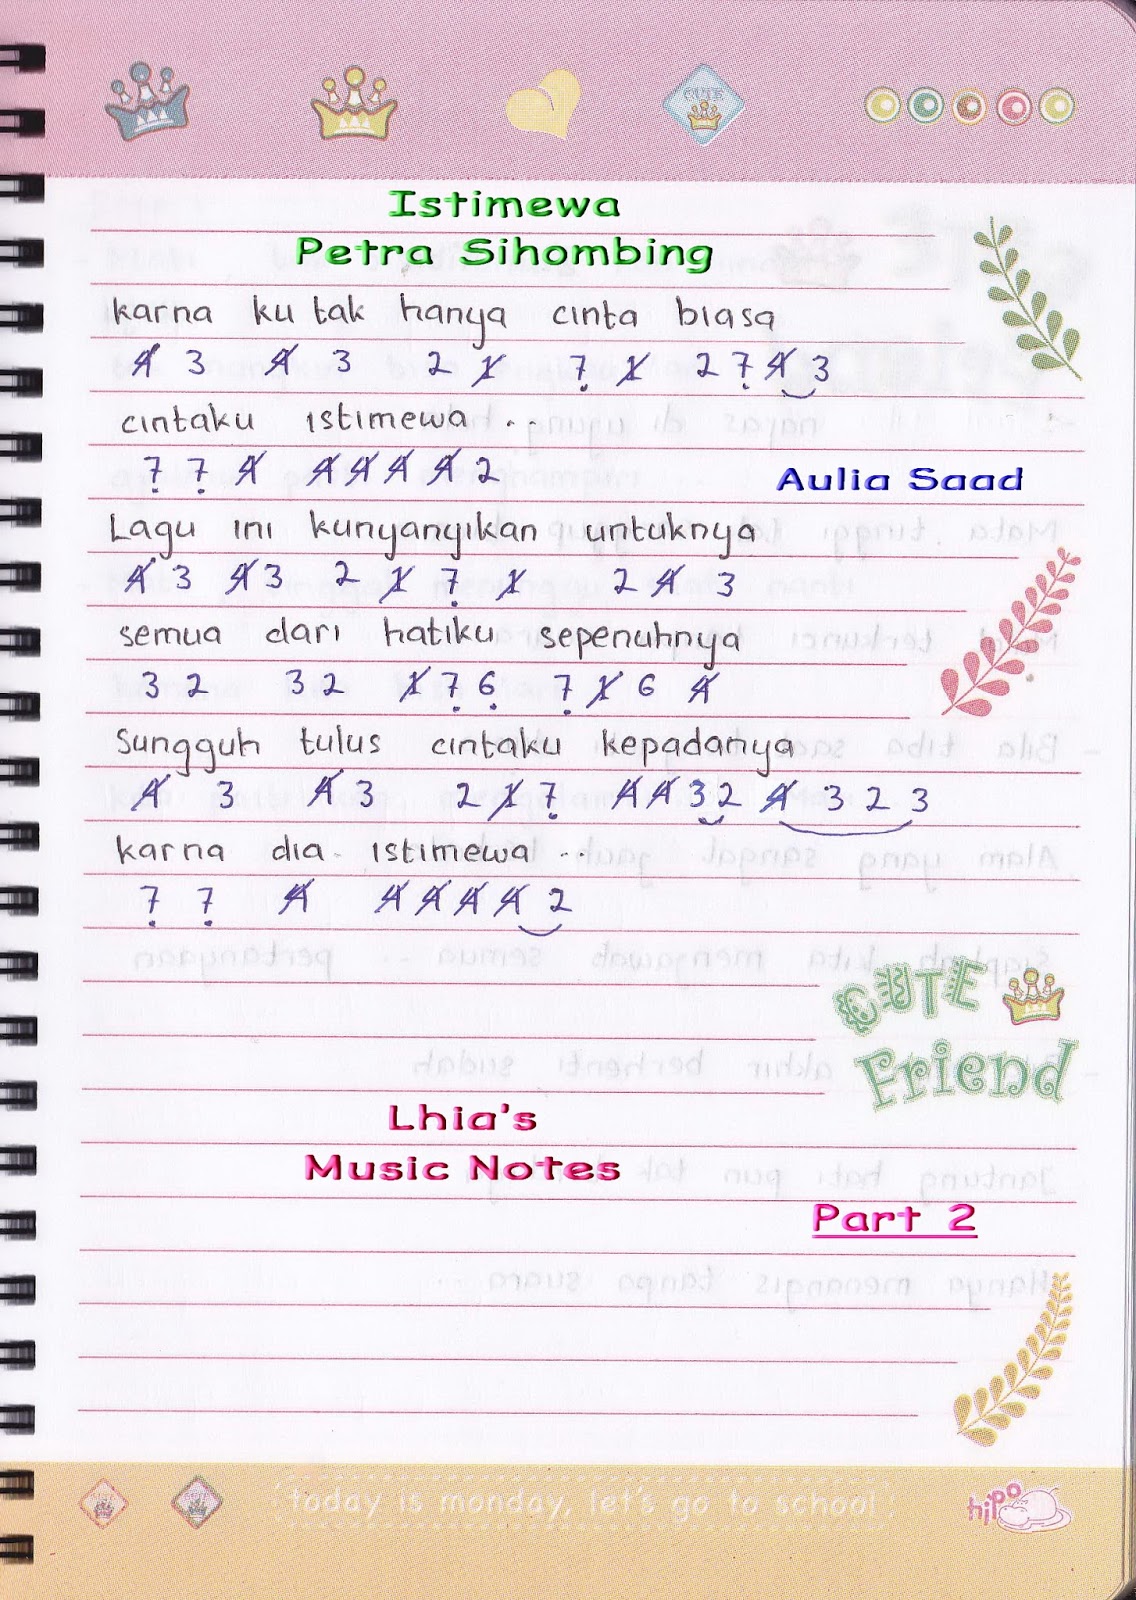 CUTE
Istimewa
Petra Sihombing
karna ku tak hanya cinta biasa
4̸ 3 4̸ 3 2 1̸ 7̣ 1̸ 2 7̣ 4̸ 3
cintaku istimewa ..
7̣ 7̣ 4̸ 4̸ 4̸ 4̸ 4̸ 2
Aulia Saad
Lagu ini kunyanyikan untuknya
4̸ 3 4̸ 3 2 1̸ 7̣ 1̸ 2 4̸ 3
semua dari hatiku sepenuhnya
3 2 3 2 1̸ 7̣ 6̣ 7̣ 1̸ 6 4̸
Sungguh tulus cintaku kepadanya
4̸ 3 4̸ 3 2 1̸ 7̣ 4̸ 4̸ 3 2 4̸ 3 2 3
karna dia istimewa ..
7̣ 7̣ 4̸ 4̸ 4̸ 4̸ 4̸ 2
CUTE
Friend
Lhia's
Music Notes
Part 2
today is monday, let's go to school.
hipo